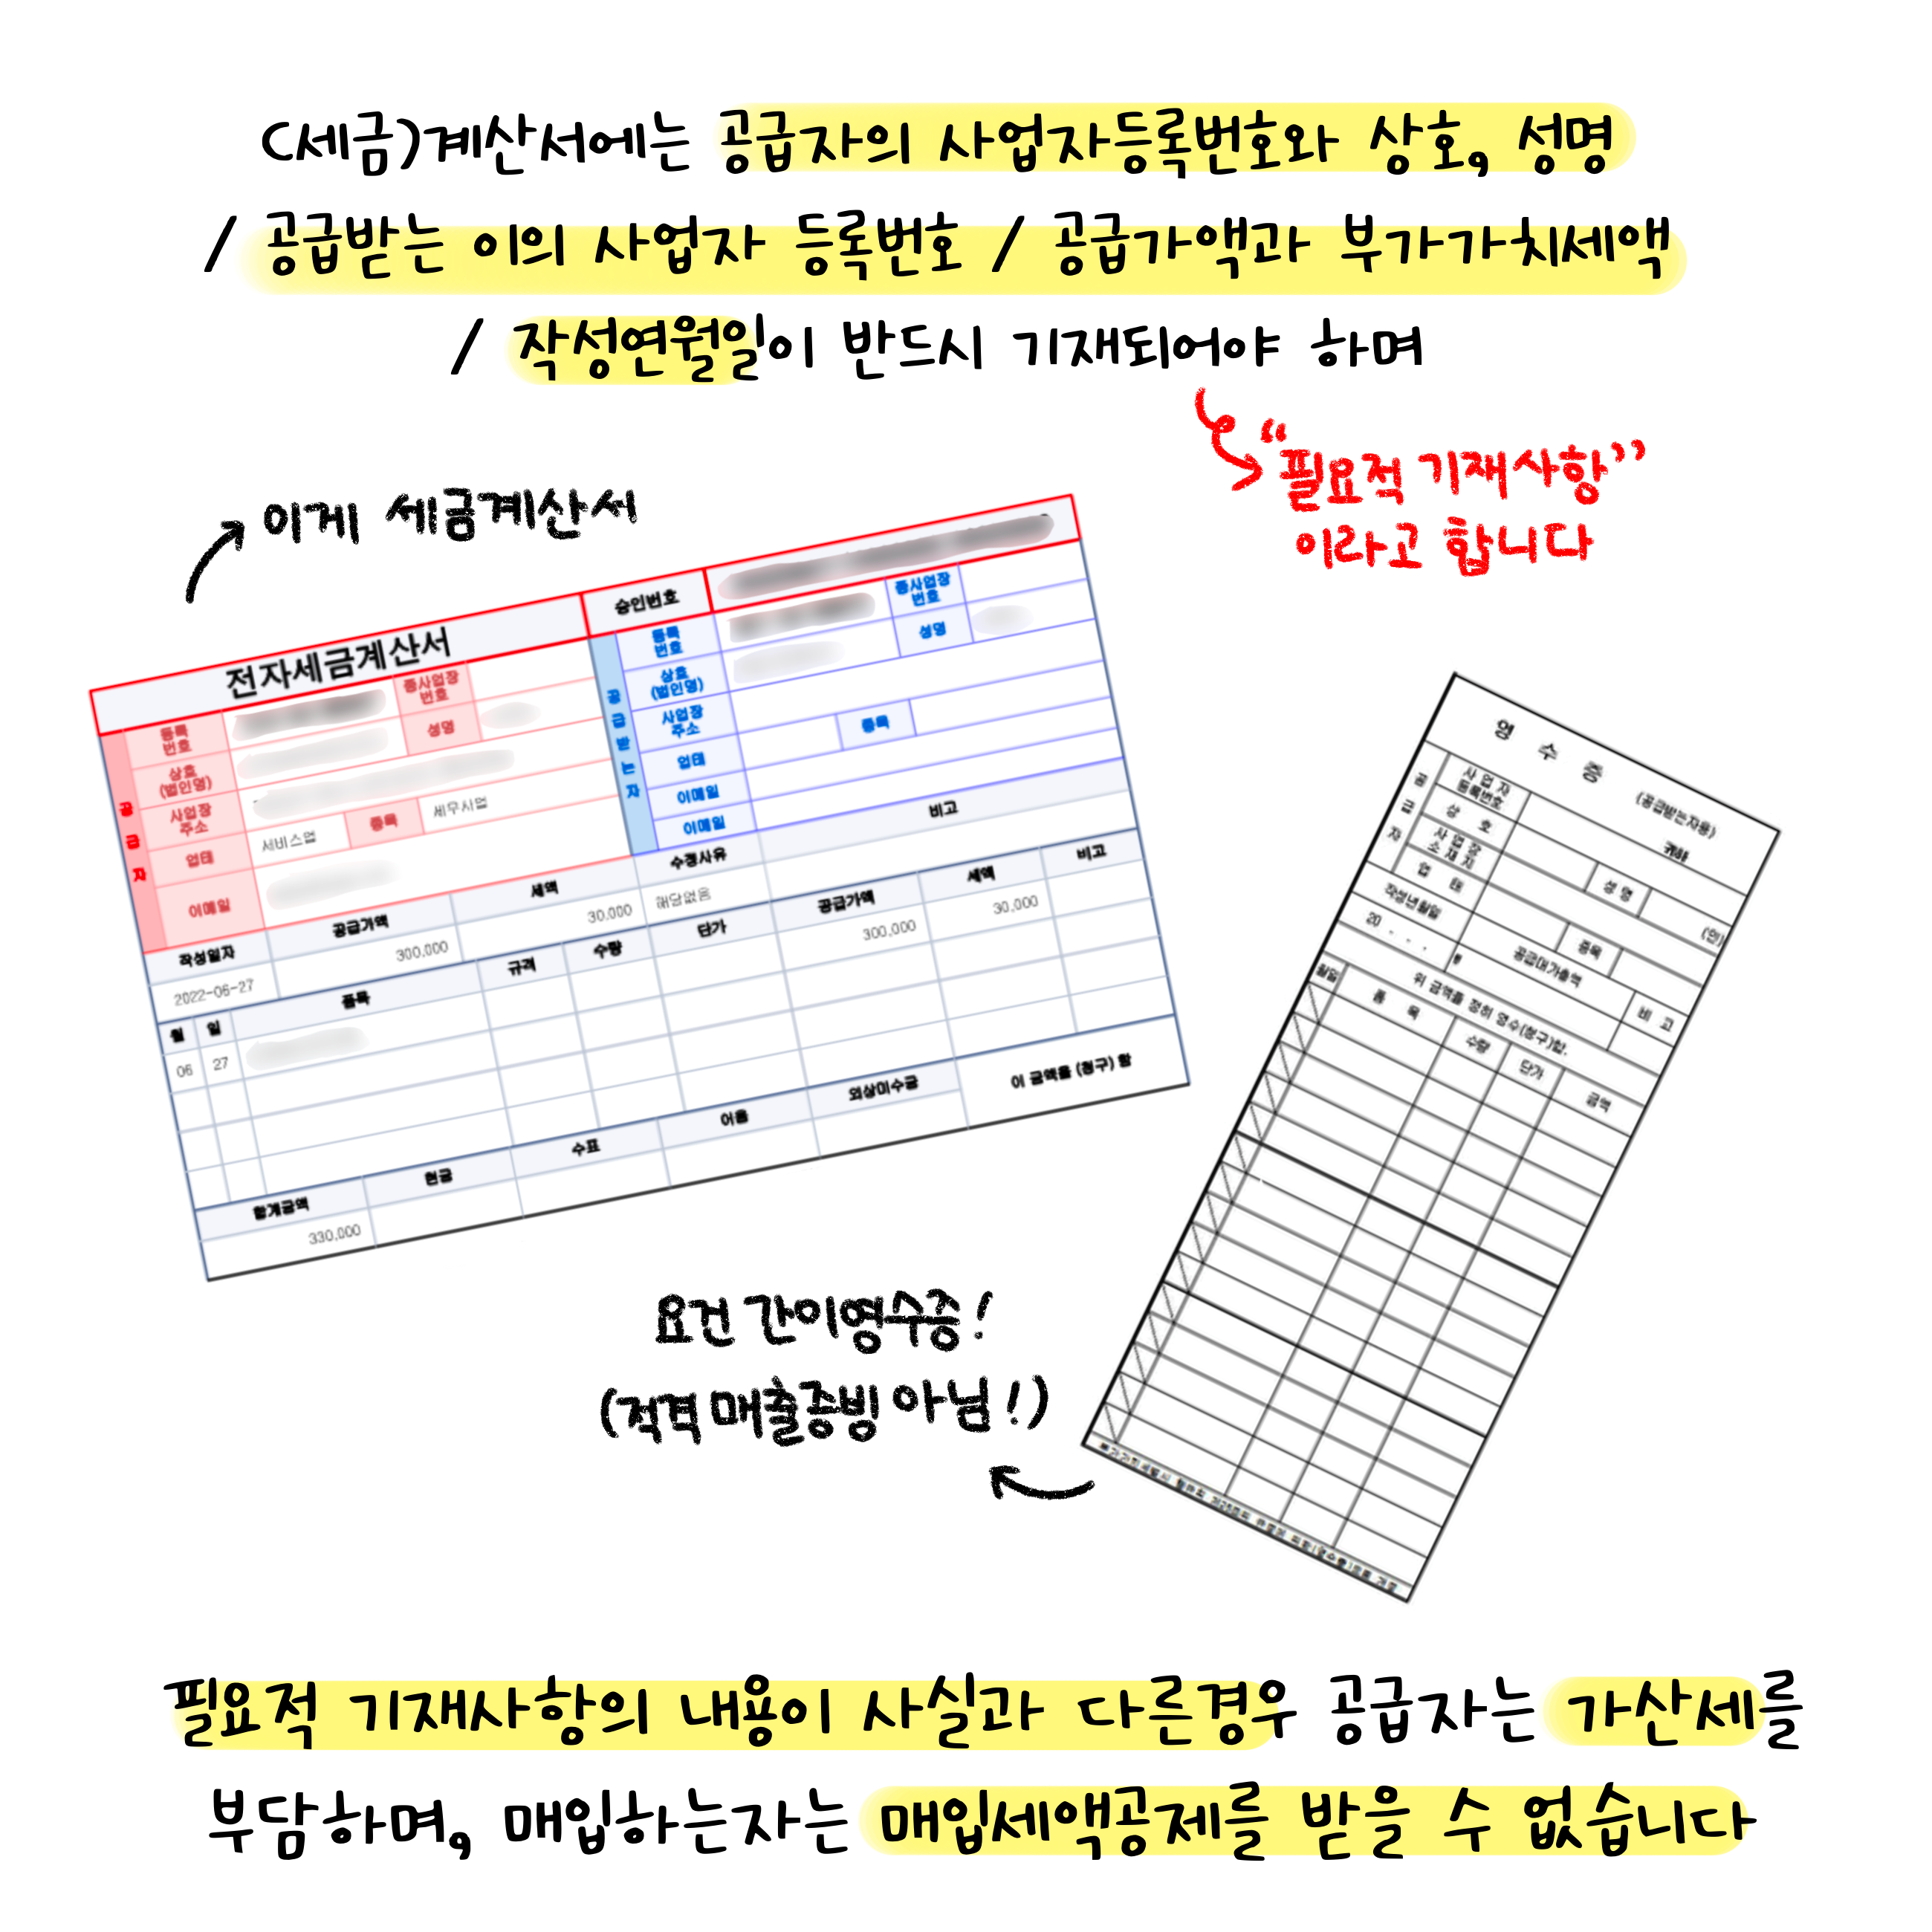 (세금)계산서에는 공급자의 사업자등록번호와 상호, 성명
/ 공급받는 이의 사업자 등록번호 / 공급가액과 부가가치세액
/ 작성연월일이 반드시 기재되어야 하며
“필요적 기재사항”
이라고 합니다
이게 세금계산서
전자세금계산서
승인번호
공급자
등록
번호
종사업장
번호
상호
(법인명)
성명
사업장
주소
업태
서비스업
종목
세무사업
이메일
공급받는자
등록
번호
종사업장
번호
상호
(법인명)
성명
사업장
주소
업태
종목
이메일
이메일
작성일자 공급가액 세액 수정사유 비고
2022-06-27 300,000 30,000 해당없음
월 일 품목 규격 수량 단가 공급가액 세액 비고
06 27 300,000 30,000
합계금액 현금 수표 어음 외상미수금 이 금액을 (청구) 함
330,000
영 수 증
(공급받는자용)
귀하
공급자
사 업 자
등록번호
상 호
성 명
(인)
사 업 장
소 재 지
업 태
종목
작성년월일 공급대가총액 비 고
20 . . . ₩
위 금액을 정히 영수(청구)함.
월일 품 목 수량 단가 금액
요건 간이영수증!
(적격 매출증빙 아님!)
필요적 기재사항의 내용이 사실과 다른경우 공급자는 가산세를
부담하며, 매입하는자는 매입세액공제를 받을 수 없습니다